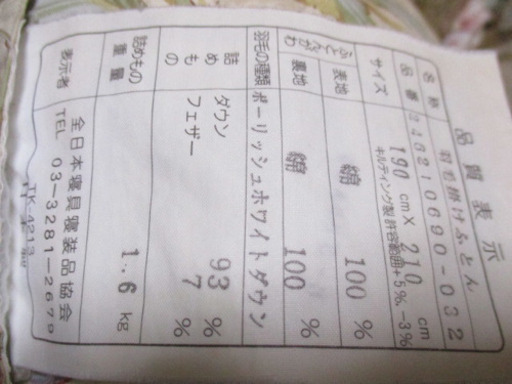 品質表示
名称 羽毛掛けふとん
品番 248210690-032
サイズ 190 cm X 210 cm
キルティング製 許容範囲+5%,-3%
ふとんがわ
表地 綿 100 %
裏地 綿 100 %
羽毛の種類 ポーリッシュホワイトダウン
詰めもの ダウン 93 %
フェザー 7 %
詰めもの重量 1.6 kg
表示者 全日本寝具寝装品協会
TEL 03-3281-2679
TK-4213